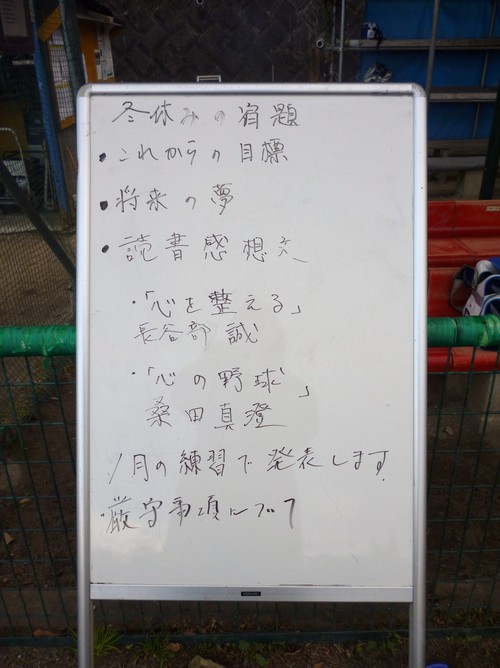 冬休みの宿題
・これからの目標
・将来の夢
・読書感想文
・「心を整える」
長谷部 誠
・「心の野球」
桑田真澄
1月の練習で発表します.
・厳守事項について